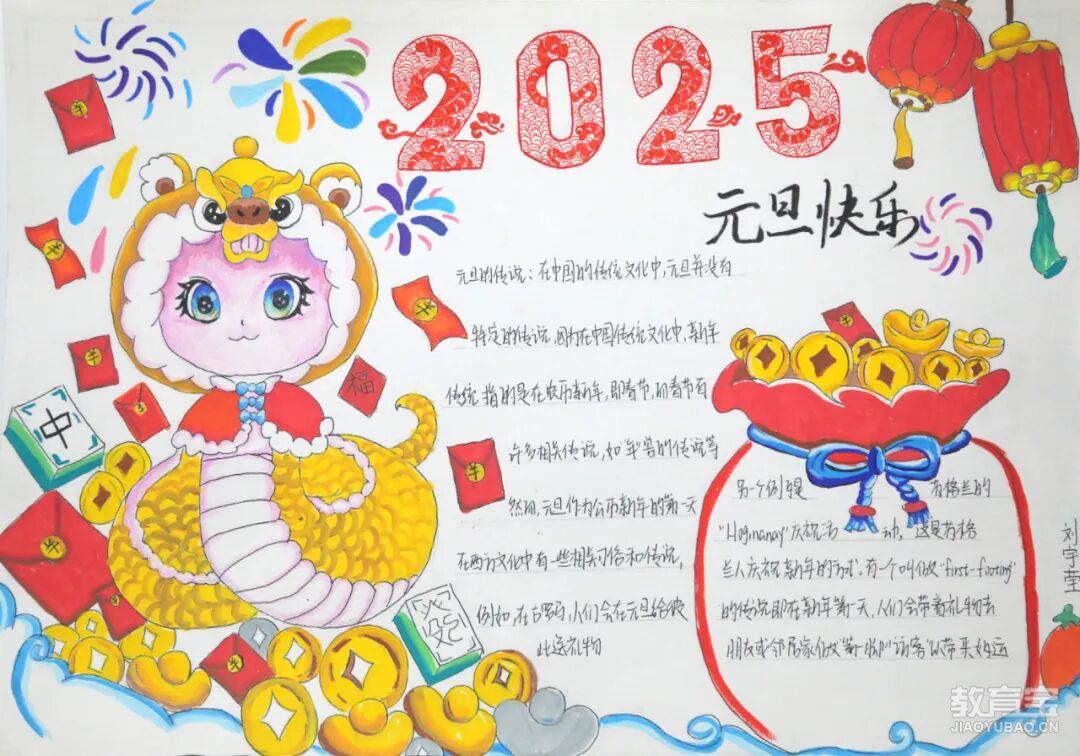 2025
元旦快乐
元旦的传说：在中国的传统文化中，元旦并没有
特定的传说，因为在中国传统文化中，新年
传统指的是在农历新年，即春节，而春节有
许多相关传说，如"年"兽的传说等
然而，元旦作为公历新年的第一天
在西方文化中有一些相关习俗和传说，
例如，在古罗马，人们会在元旦给彼
此送礼物
另一个例子是 苏格兰的
"Hogmanay"庆祝活 动，这是苏格
兰人庆祝新年的方式，有一个叫做"first-footing"
的传说即在新年第一天，人们会带着礼物去
朋友或邻居家做"第一脚"访客"以带来好运
刘宇莹
福
中
發
教育宝
JIAOYUBAO.CN